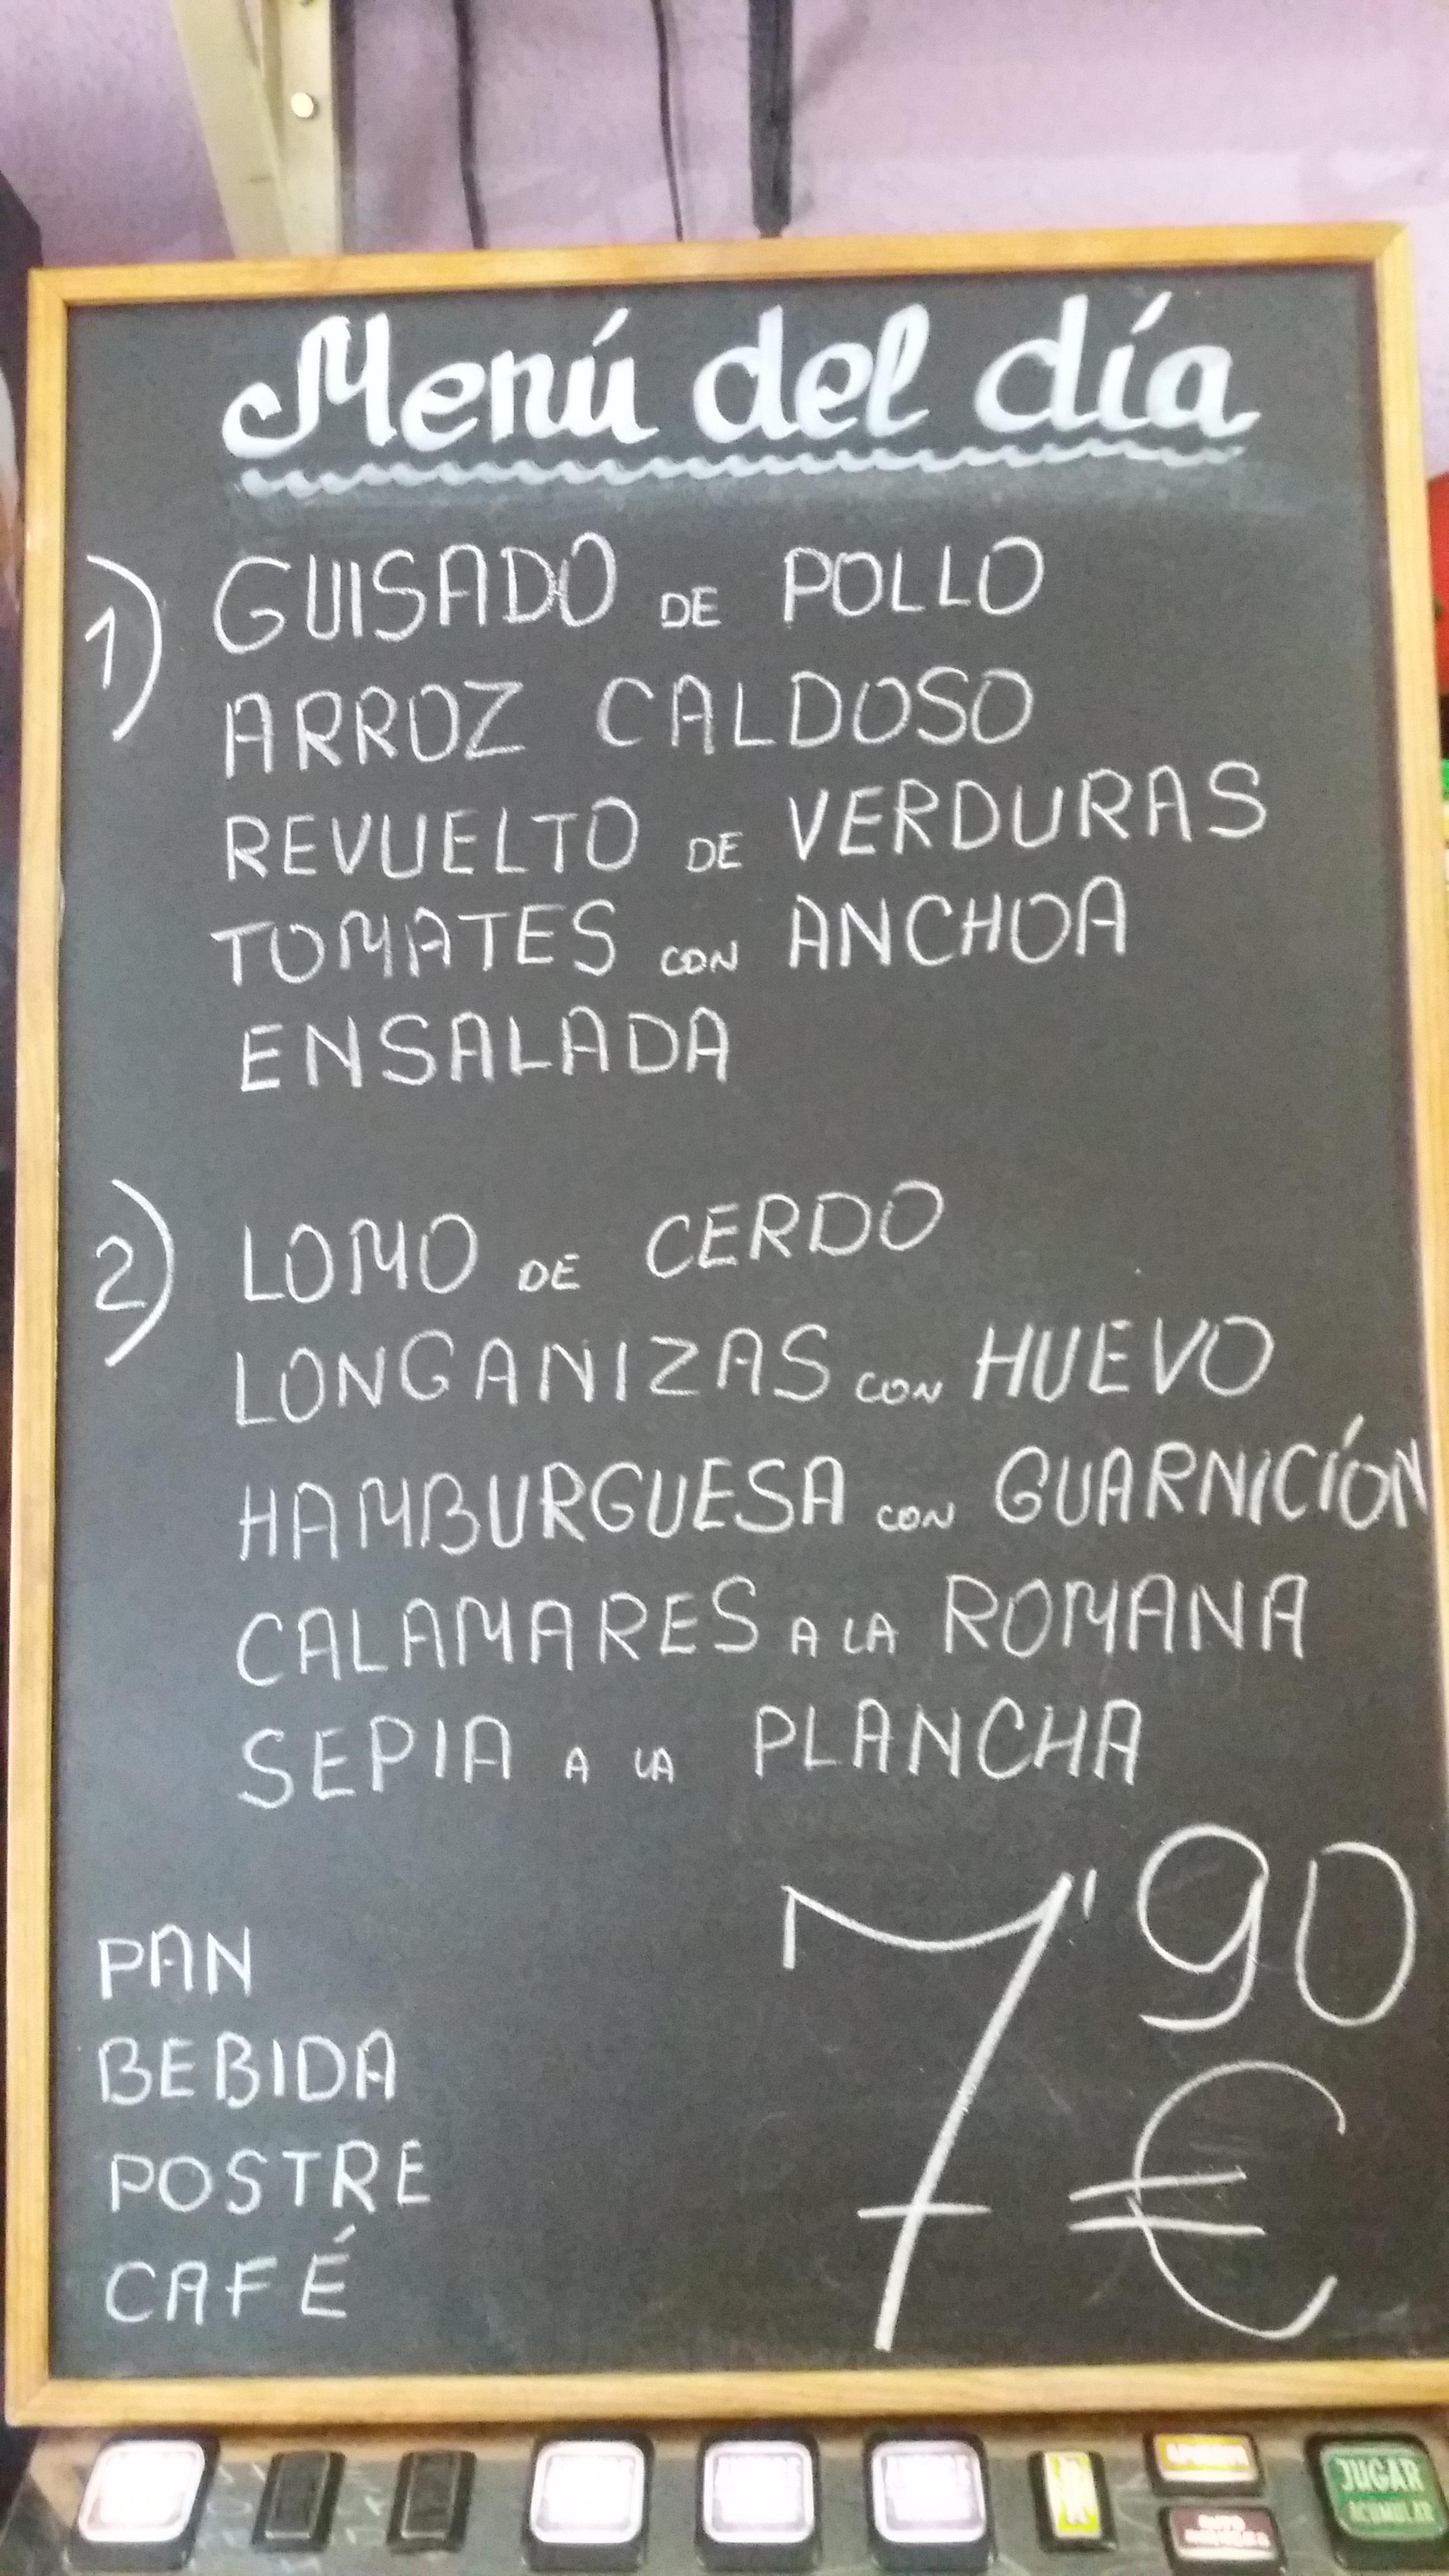 Menú del día
1) GUISADO DE POLLO
ARROZ CALDOSO
REVUELTO DE VERDURAS
TOMATES CON ANCHOA
ENSALADA
2) LOMO DE CERDO
LONGANIZAS CON HUEVO
HAMBURGUESA CON GUARNICÍÓN
CALAMARES A LA ROMANA
SEPIA A LA PLANCHA
PAN
BEBIDA
POSTRE
CAFÉ
7'90
€
JUGAR
ACUMULAR